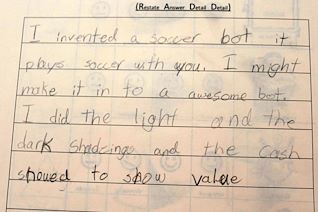 (Restate Answer Detail Detail)
I invented a soccer bot it
plays soccer with you. I might
make it in to a awesome bot.
I did the light and the
dark shadeings and the cash
showed to show value